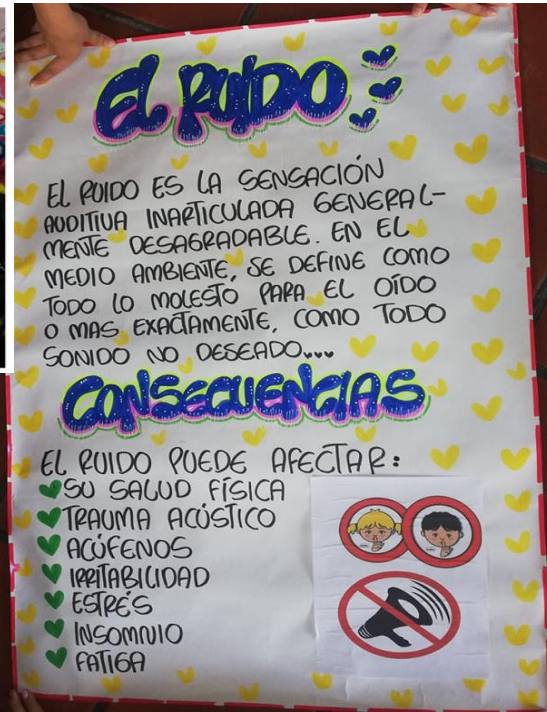 EL RUIDO
EL RUIDO ES LA SENSACIÓN
AUDITIVA INARTICULADA GENERAL-
MENTE DESAGRADABLE. EN EL
MEDIO AMBIENTE, SE DEFINE COMO
TODO LO MOLESTO PARA EL OÍDO
O MAS EXACTAMENTE, COMO TODO
SONIDO NO DESEADO...
CONSECUENCIAS
EL RUIDO PUEDE AFECTAR:
SU SALUD FÍSICA
TRAUMA ACÚSTICO
ACÚFENOS
IRRITABILIDAD
ESTRÉS
INSOMNIO
FATIGA